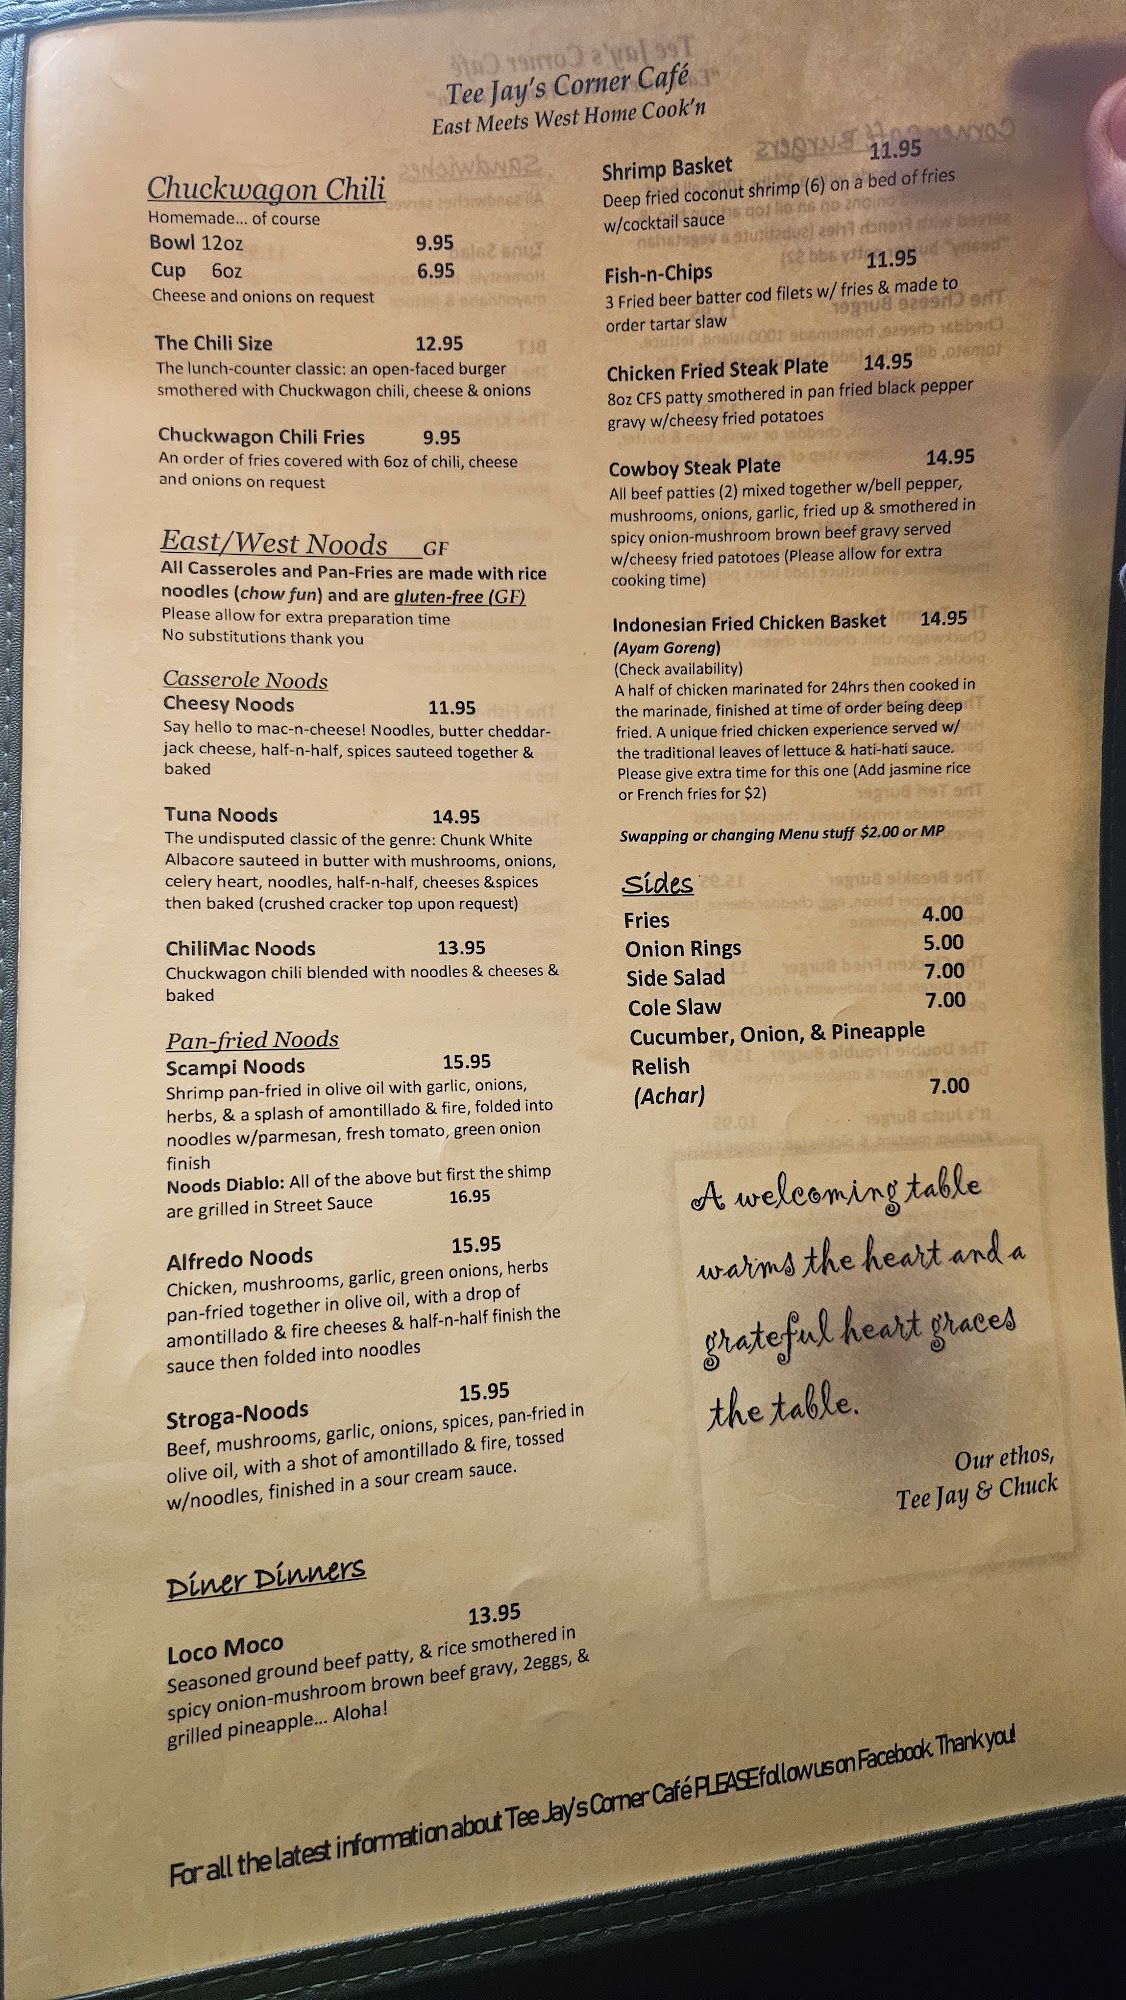 Tee Jay's Corner Café
East Meets West Home Cook'n
Chuckwagon Chili
Homemade... of course
Bowl 12oz 9.95
Cup 6oz 6.95
Cheese and onions on request
The Chili Size 12.95
The lunch-counter classic: an open-faced burger
smothered with Chuckwagon chili, cheese & onions
Chuckwagon Chili Fries 9.95
An order of fries covered with 6oz of chili, cheese
and onions on request
East/West Noods GF
All Casseroles and Pan-Fries are made with rice
noodles (chow fun) and are gluten-free (GF)
Please allow for extra preparation time
No substitutions thank you
Casserole Noods
Cheesy Noods 11.95
Say hello to mac-n-cheese! Noodles, butter cheddar-
jack cheese, half-n-half, spices sauteed together &
baked
Tuna Noods 14.95
The undisputed classic of the genre: Chunk White
Albacore sauteed in butter with mushrooms, onions,
celery heart, noodles, half-n-half, cheeses &spices
then baked (crushed cracker top upon request)
ChiliMac Noods 13.95
Chuckwagon chili blended with noodles & cheeses &
baked
Pan-fried Noods
Scampi Noods 15.95
Shrimp pan-fried in olive oil with garlic, onions,
herbs, & a splash of amontillado & fire, folded into
noodles w/parmesan, fresh tomato, green onion
finish
Noods Diablo: All of the above but first the shimp
are grilled in Street Sauce 16.95
Alfredo Noods 15.95
Chicken, mushrooms, garlic, green onions, herbs
pan-fried together in olive oil, with a drop of
amontillado & fire cheeses & half-n-half finish the
sauce then folded into noodles
Stroga-Noods 15.95
Beef, mushrooms, garlic, onions, spices, pan-fried in
olive oil, with a shot of amontillado & fire, tossed
w/noodles, finished in a sour cream sauce.
Diner Dinners
Loco Moco 13.95
Seasoned ground beef patty, & rice smothered in
spicy onion-mushroom brown beef gravy, 2eggs, &
grilled pineapple... Aloha!
Shrimp Basket 11.95
Deep fried coconut shrimp (6) on a bed of fries
w/cocktail sauce
Fish-n-Chips 11.95
3 Fried beer batter cod filets w/ fries & made to
order tartar slaw
Chicken Fried Steak Plate 14.95
8oz CFS patty smothered in pan fried black pepper
gravy w/cheesy fried potatoes
Cowboy Steak Plate 14.95
All beef patties (2) mixed together w/bell pepper,
mushrooms, onions, garlic, fried up & smothered in
spicy onion-mushroom brown beef gravy served
w/cheesy fried patotoes (Please allow for extra
cooking time)
Indonesian Fried Chicken Basket 14.95
(Ayam Goreng)
(Check availability)
A half of chicken marinated for 24hrs then cooked in
the marinade, finished at time of order being deep
fried. A unique fried chicken experience served w/
the traditional leaves of lettuce & hati-hati sauce.
Please give extra time for this one (Add jasmine rice
or French fries for $2)
Swapping or changing Menu stuff $2.00 or MP
Sides
Fries 4.00
Onion Rings 5.00
Side Salad 7.00
Cole Slaw 7.00
Cucumber, Onion, & Pineapple
Relish
(Achar) 7.00
A welcoming table
warms the heart and a
grateful heart graces
the table.
Our ethos,
Tee Jay & Chuck
For all the latest information about Tee Jay's Corner Café PLEASE follow us on Facebook. Thank you!